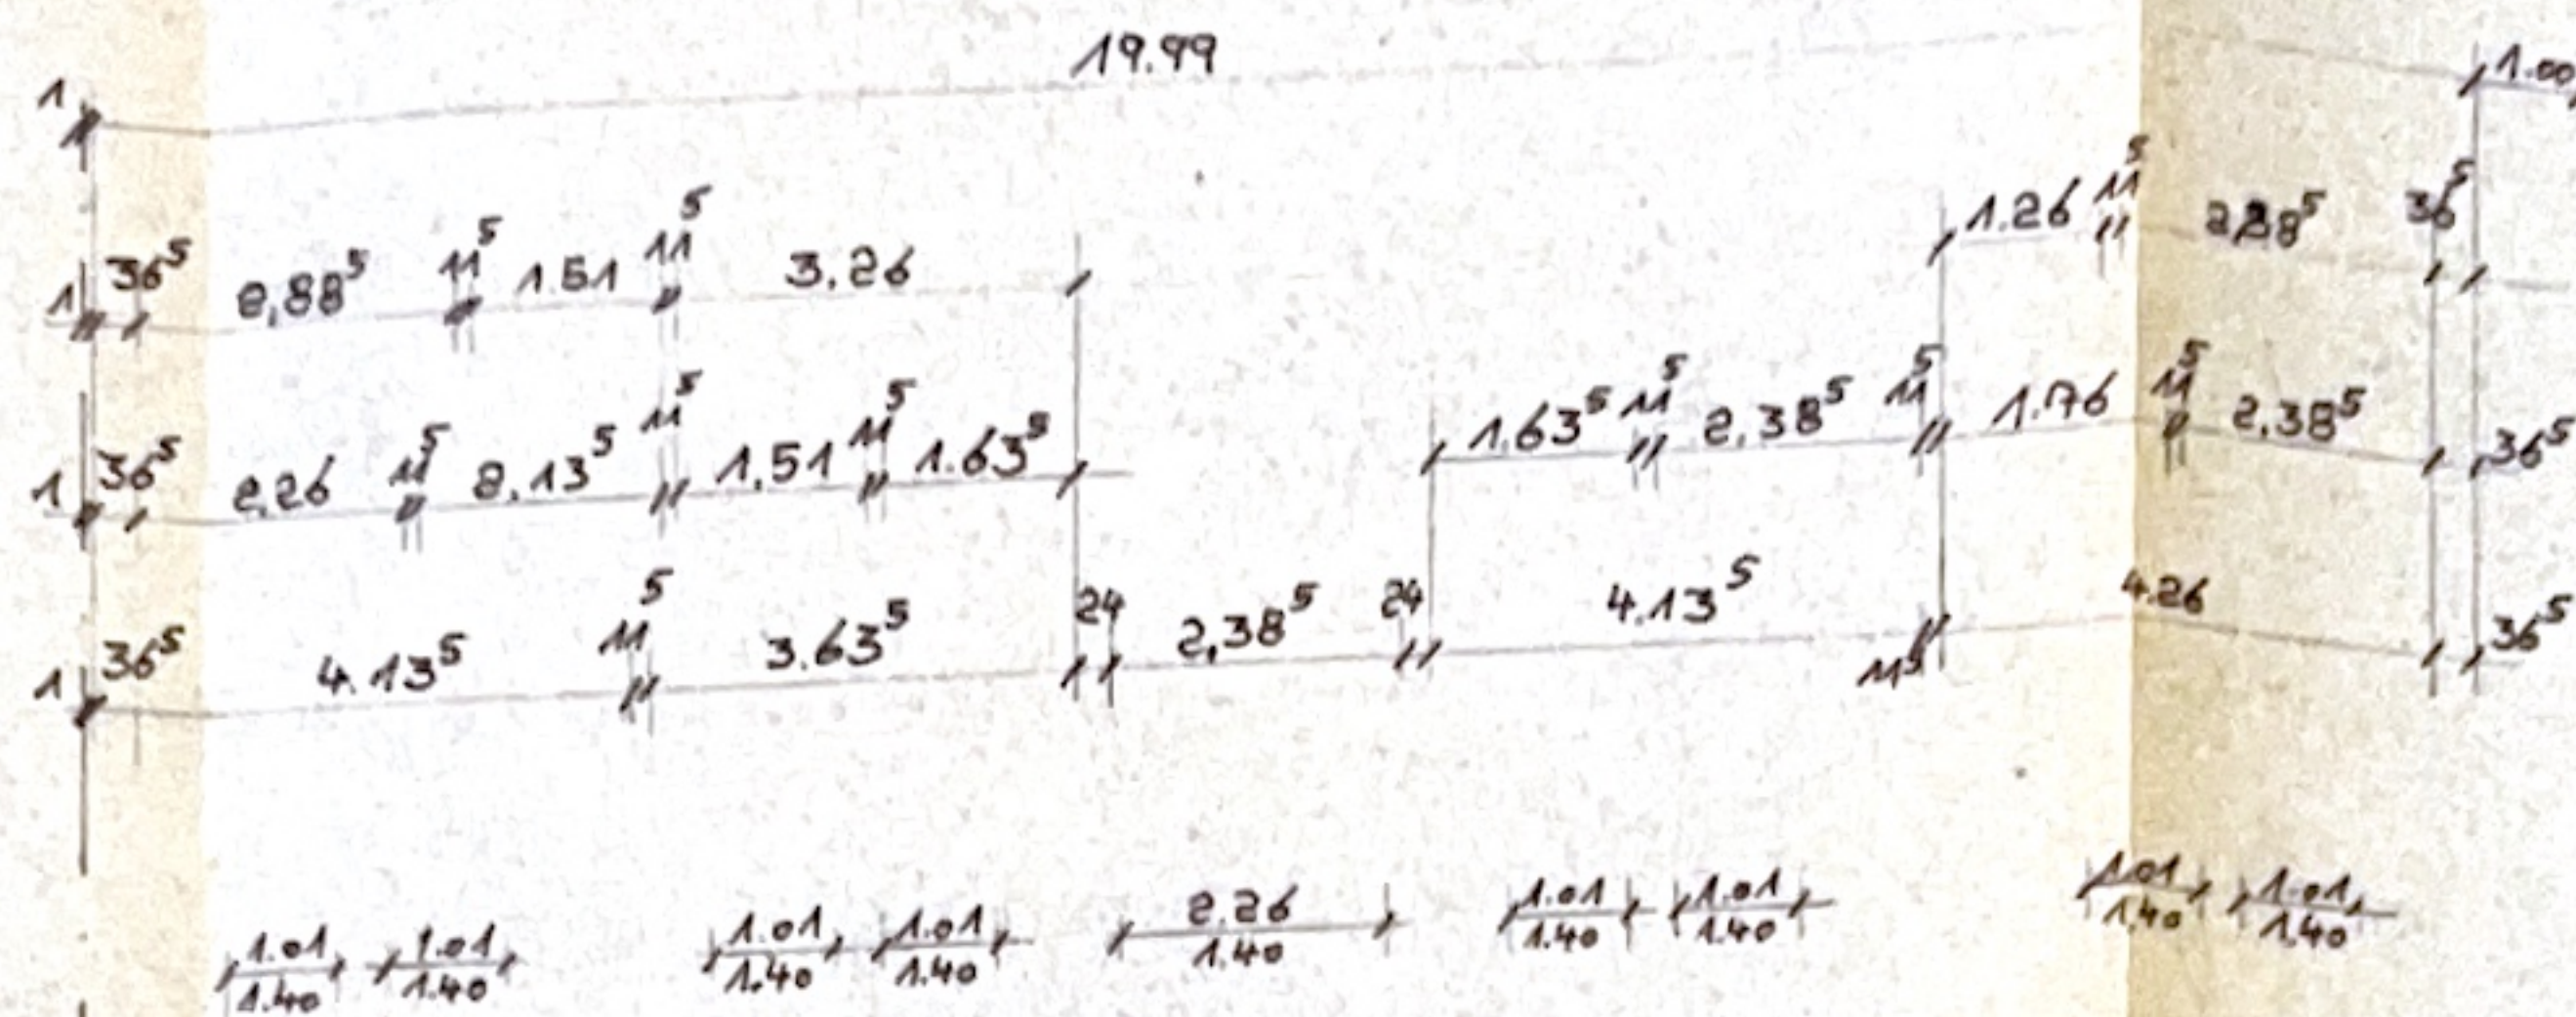 19.99
1 1.00
1.26 11⁵ 2.88⁵ 36⁵
1 36⁵ 2,88⁵ 11⁵ 1.51 11⁵ 3.26
1.63⁵ 11⁵ 2.38⁵ 11⁵ 1.76 11⁵ 2.38⁵ 36⁵
1 36⁵ 2.26 11⁵ 2.13⁵ 11⁵ 1.51 11⁵ 1.63⁵
1 36⁵ 4.13⁵ 11⁵ 3.63⁵ 24 2,38⁵ 24 4.13⁵ 11⁵ 4.26 36⁵
1.01 1.01 1.01 1.01 2.26 1.01 1.01 1.01 1.01
1.40 1.40 1.40 1.40 1.40 1.40 1.40 1.40 1.40